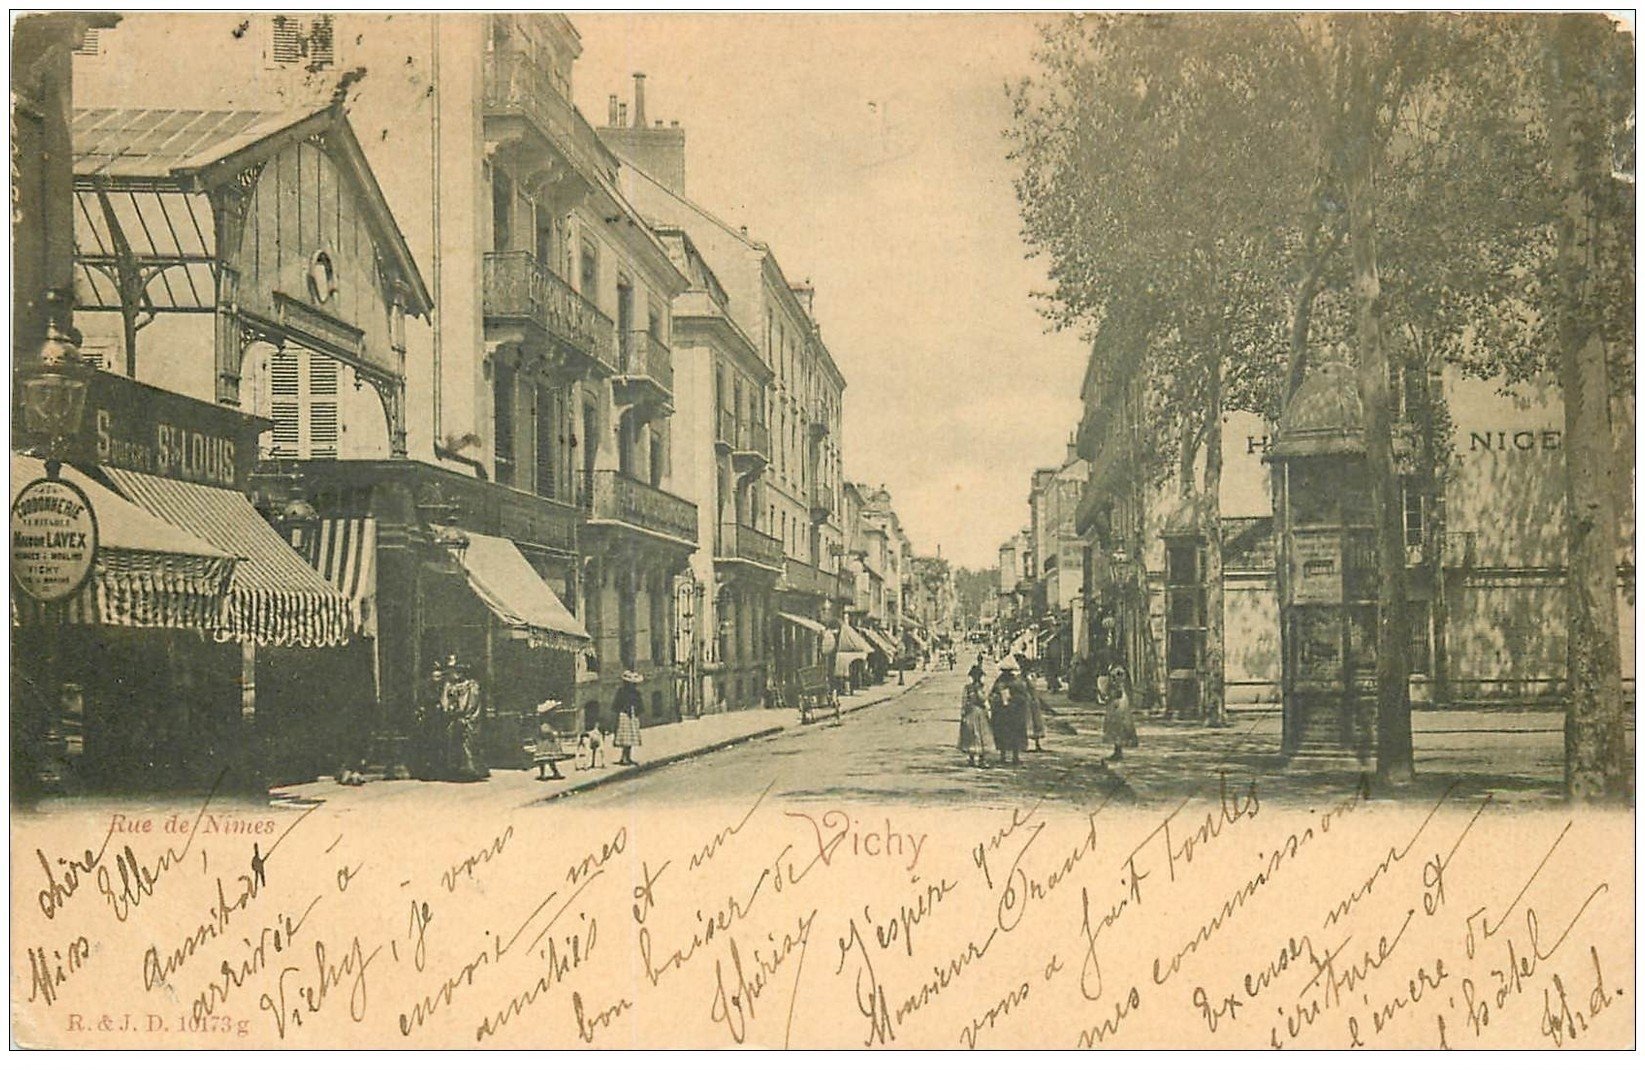 St LOUIS
CORDONNERIE
Maison LAVEX
VICHY
NICE
Rue de Nimes
Vichy
R. & J. D. 10173 g
chère
Miss Ellen,
Aussitôt
arrivée à
Vichy, je vous
envoie mes
amitiés et un
bon baiser de
Thérèse
J'espère que
Monsieur
vous a fait toutes
mes commissions
Excusez mon
écriture et
l'encre de
l'hôtel
Thed.